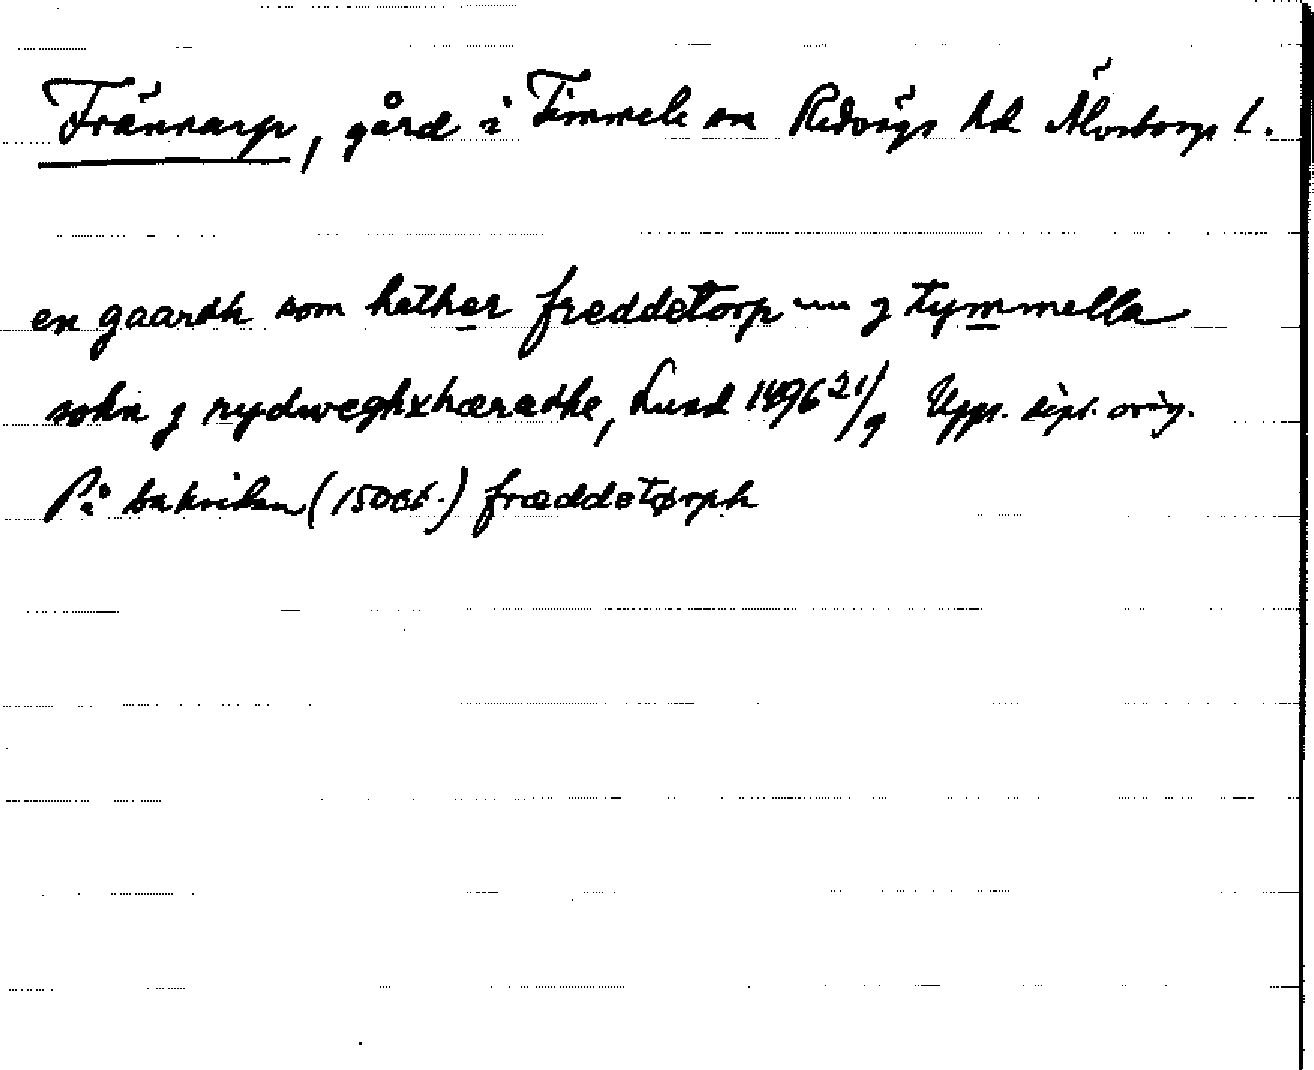 Frännarp, gård i Timmele sn Redvägs hd Älvsborgs l.
en gaardh som hether freddetorp ~~ j tymmella
sokn j rydweghxhæradhe, Lund 1496 21/9 Upps. dipl. orig.
På baksidan (1500t.) fræddetørph